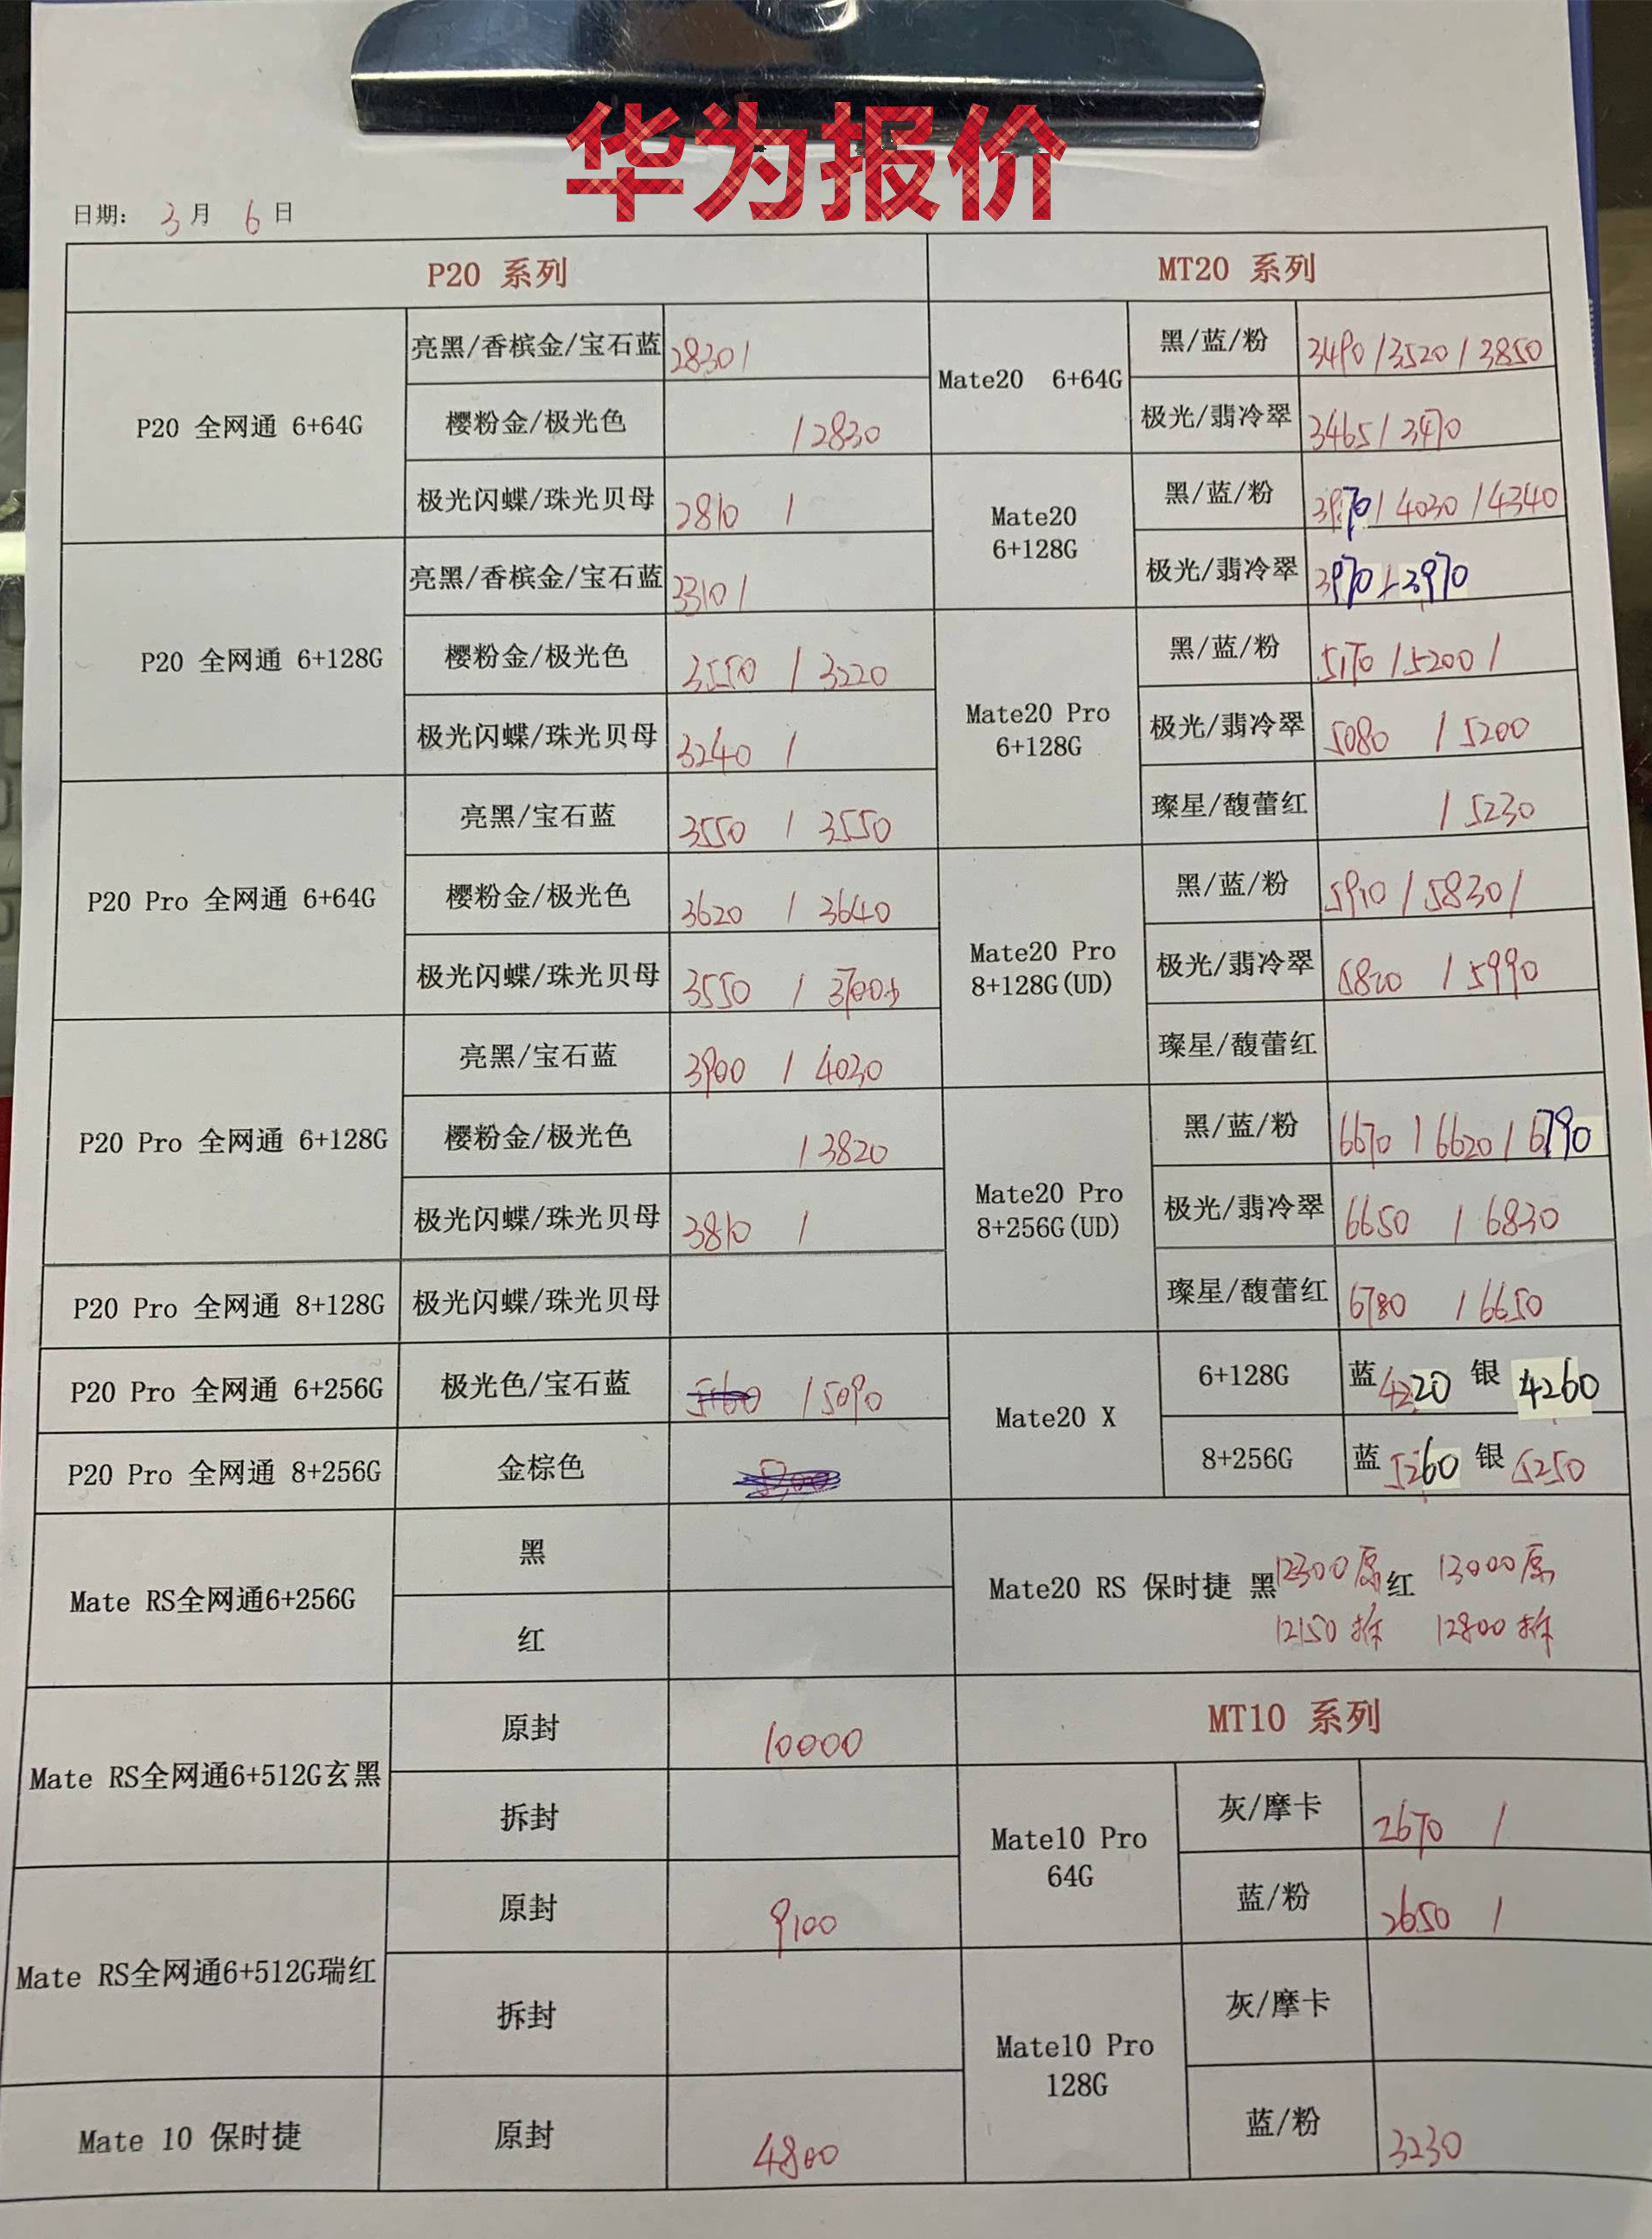 华为报价
日期： 3月 6日
P20 系列
P20 全网通 6+64G
亮黑/香槟金/宝石蓝 2830 /
樱粉金/极光色 / 2830
极光闪蝶/珠光贝母 2810 /
P20 全网通 6+128G
亮黑/香槟金/宝石蓝 3310 /
樱粉金/极光色 3550 / 3220
极光闪蝶/珠光贝母 3240 /
P20 Pro 全网通 6+64G
亮黑/宝石蓝 3550 / 3550
樱粉金/极光色 3620 / 3640
极光闪蝶/珠光贝母 3550 /
P20 Pro 全网通 6+128G
亮黑/宝石蓝 3900 / 4030
樱粉金/极光色 / 3820
极光闪蝶/珠光贝母 3810 /
P20 Pro 全网通 8+128G 极光闪蝶/珠光贝母
P20 Pro 全网通 6+256G 极光色/宝石蓝 / 5090
P20 Pro 全网通 8+256G 金棕色
Mate RS全网通6+256G
黑
红
Mate RS全网通6+512G玄黑
原封 10000
拆封
Mate RS全网通6+512G瑞红
原封 9100
拆封
Mate 10 保时捷 原封 4800
MT20 系列
Mate20 6+64G
黑/蓝/粉 3490 / 3520 / 3850
极光/翡冷翠 3465 / 3470
Mate20
6+128G
黑/蓝/粉 3970 / 4030 / 4340
极光/翡冷翠 3970 / 3970
Mate20 Pro
6+128G
黑/蓝/粉 5170 / 5200 /
极光/翡冷翠 5080 / 5200
璨星/馥蕾红 / 5230
Mate20 Pro
8+128G(UD)
黑/蓝/粉 5910 / 5830 /
极光/翡冷翠 5820 / 5990
璨星/馥蕾红
Mate20 Pro
8+256G(UD)
黑/蓝/粉 6670 / 6620 / 6790
极光/翡冷翠 6650 / 6830
璨星/馥蕾红 6780 / 6650
Mate20 X
6+128G 蓝 4220 银 4260
8+256G 蓝 5260 银 5250
Mate20 RS 保时捷 黑 12300原 红 13000原
12150拆 12800拆
MT10 系列
Mate10 Pro
64G
灰/摩卡 2670 /
蓝/粉 2650 /
Mate10 Pro
128G
灰/摩卡
蓝/粉 3230